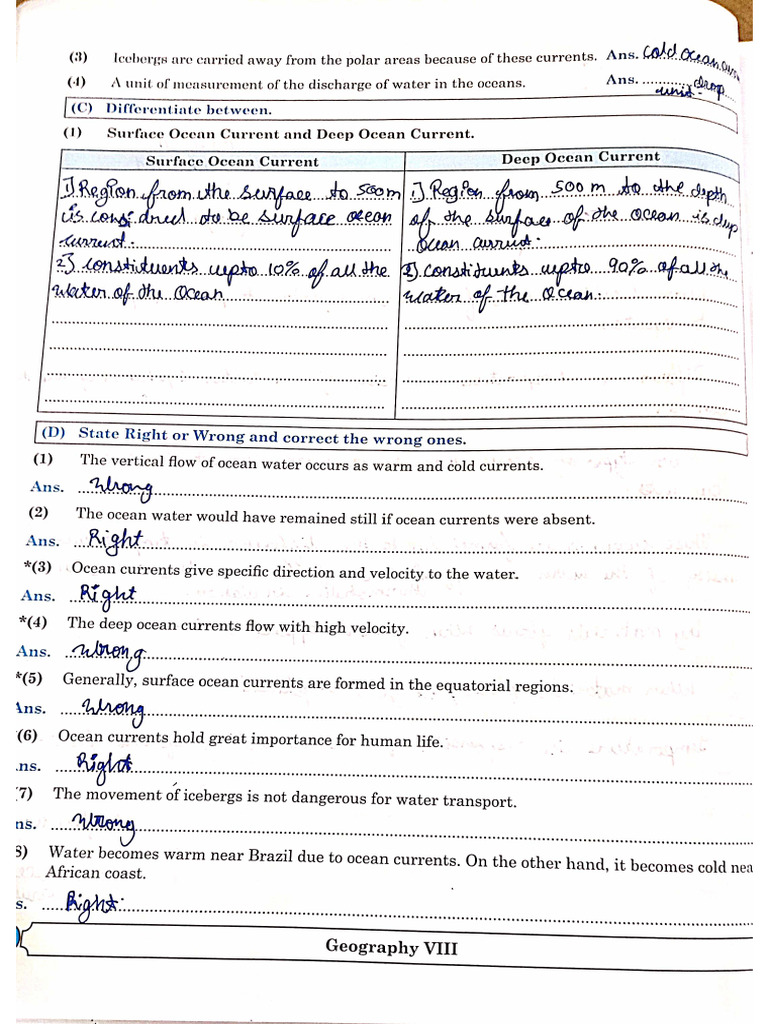 (3) Icebergs are carried away from the polar areas because of these currents. Ans. cold ocean curr
(4) A unit of measurement of the discharge of water in the oceans. Ans. ............ drop
unit.
(C) Differentiate between.
(1) Surface Ocean Current and Deep Ocean Current.
Surface Ocean Current
1) Region from the surface to 500m
is considred to be surface ocean
current.
2) constituents upto 10% of all the
water of the Ocean
Deep Ocean Current
1) Region from 500 m to the depth
of the surface of the ocean is dep
ocean current.
2) constituents upto 90% of all the
water of the Ocean.
(D) State Right or Wrong and correct the wrong ones.
(1) The vertical flow of ocean water occurs as warm and cold currents.
Ans. Wrong
(2) The ocean water would have remained still if ocean currents were absent.
Ans. Right
*(3) Ocean currents give specific direction and velocity to the water.
Ans. Right
*(4) The deep ocean currents flow with high velocity.
Ans. Wrong
*(5) Generally, surface ocean currents are formed in the equatorial regions.
Ans. Wrong
(6) Ocean currents hold great importance for human life.
ns. Right
7) The movement of icebergs is not dangerous for water transport.
ns. Wrong
8) Water becomes warm near Brazil due to ocean currents. On the other hand, it becomes cold nea
African coast.
s. Right.
Geography VIII